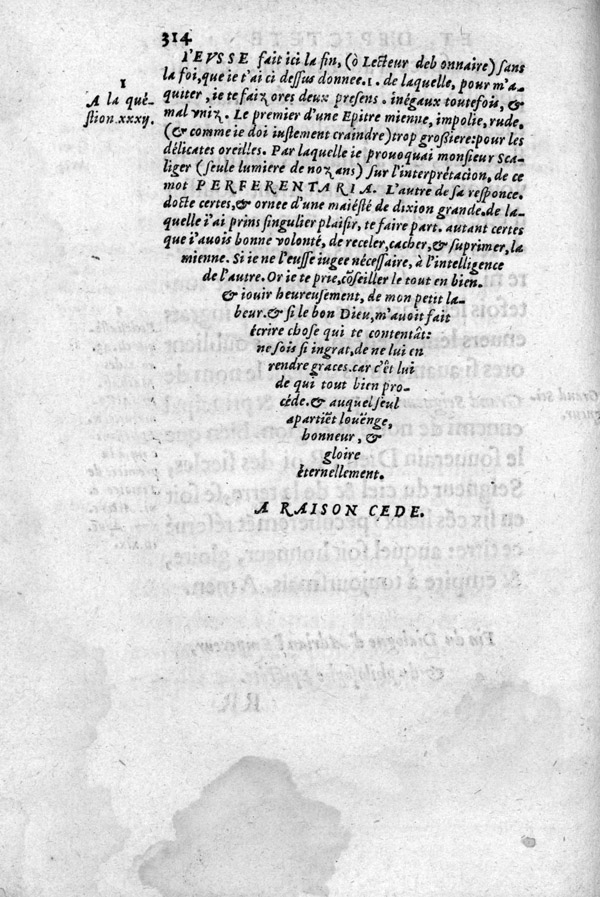 314
I'EVSSE fait ici la fin, (ò Lecteur deb onnaire) sans
la foi, que ie t'ai ci dessus donnee.1. de laquelle, pour m'a-
quiter, ie te faiz ores deux presens. inégaux toutefois, &
mal vniz. Le premier d'une Epitre mienne, impolie, rude.
(& comme ie doi iustement craindre) trop grossiere: pour les
délicates oreilles. Par laquelle ie prouoquai monsieur Sca-
liger (seule lumiere de noz ans) sur l'interprétacion, de ce
mot PERFERENTARIA. L'autre de sa responce.
docte certes, & ornee d'une maiésté de dixion grande. de la-
quelle i'ai prins singulier plaisir, te faire part. autant certes
que i'auois bonne volonté, de receler, cacher, & suprimer, la
mienne. Si ie ne l'eusse iugee nécessaire, à l'intelligence
de l'autre. Or ie te prie, cõseiller le tout en bien.
& iouir heureusement, de mon petit la-
beur. & si le bon Dieu, m'auoit fait
écrire chose qui te contentât:
ne sois si ingrat, de ne lui en
rendre graces. car c'êt lui
de qui tout bien pro-
céde. & auquel seul
apartiẽt louënge,
honneur, &
gloire
èternellement.
A RAISON CEDE.
1
A la qué-
stion.xxxy.